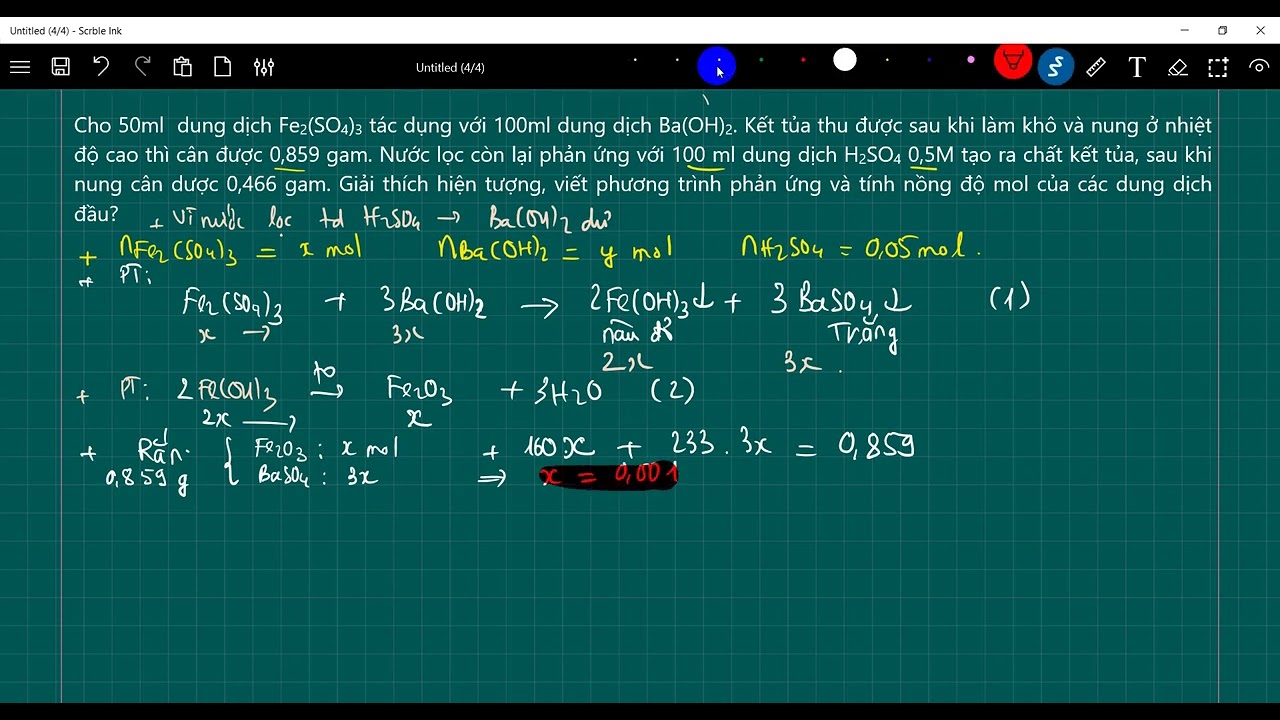 Untitled (4/4) - Scrble Ink
Untitled (4/4)
T
Cho 50ml dung dịch Fe₂(SO₄)₃ tác dụng với 100ml dung dịch Ba(OH)₂. Kết tủa thu được sau khi làm khô và nung ở nhiệt
độ cao thì cân được 0,859 gam. Nước lọc còn lại phản ứng với 100 ml dung dịch H₂SO₄ 0,5M tạo ra chất kết tủa, sau khi
nung cân dược 0,466 gam. Giải thích hiện tượng, viết phương trình phản ứng và tính nồng độ mol của các dung dịch
đầu?
+ Vì nước lọc td H₂SO₄ → Ba(OH)₂ dư
+ nFe₂(SO₄)₃ = x mol nBa(OH)₂ = y mol nH₂SO₄ = 0,05 mol.
+ PT:
Fe₂(SO₄)₃ + 3Ba(OH)₂ → 2Fe(OH)₃↓ + 3BaSO₄↓ (1)
x → 3x nâu đỏ Trắng
2x 3x.
+ PT: 2Fe(OH)₃ t⁰→ Fe₂O₃ + 3H₂O (2)
2x → x
+ Rắn { Fe₂O₃ : x mol + 160x + 233.3x = 0,859
0,859g BaSO₄ : 3x ⇒ x = 0,001